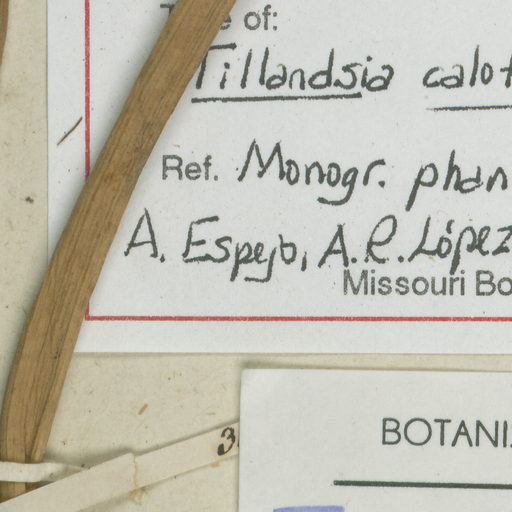 of:
Tillandsia calot
Ref. Monogr. phan
A. Espejo, A.R. López
Missouri Bo
3
BOTANI